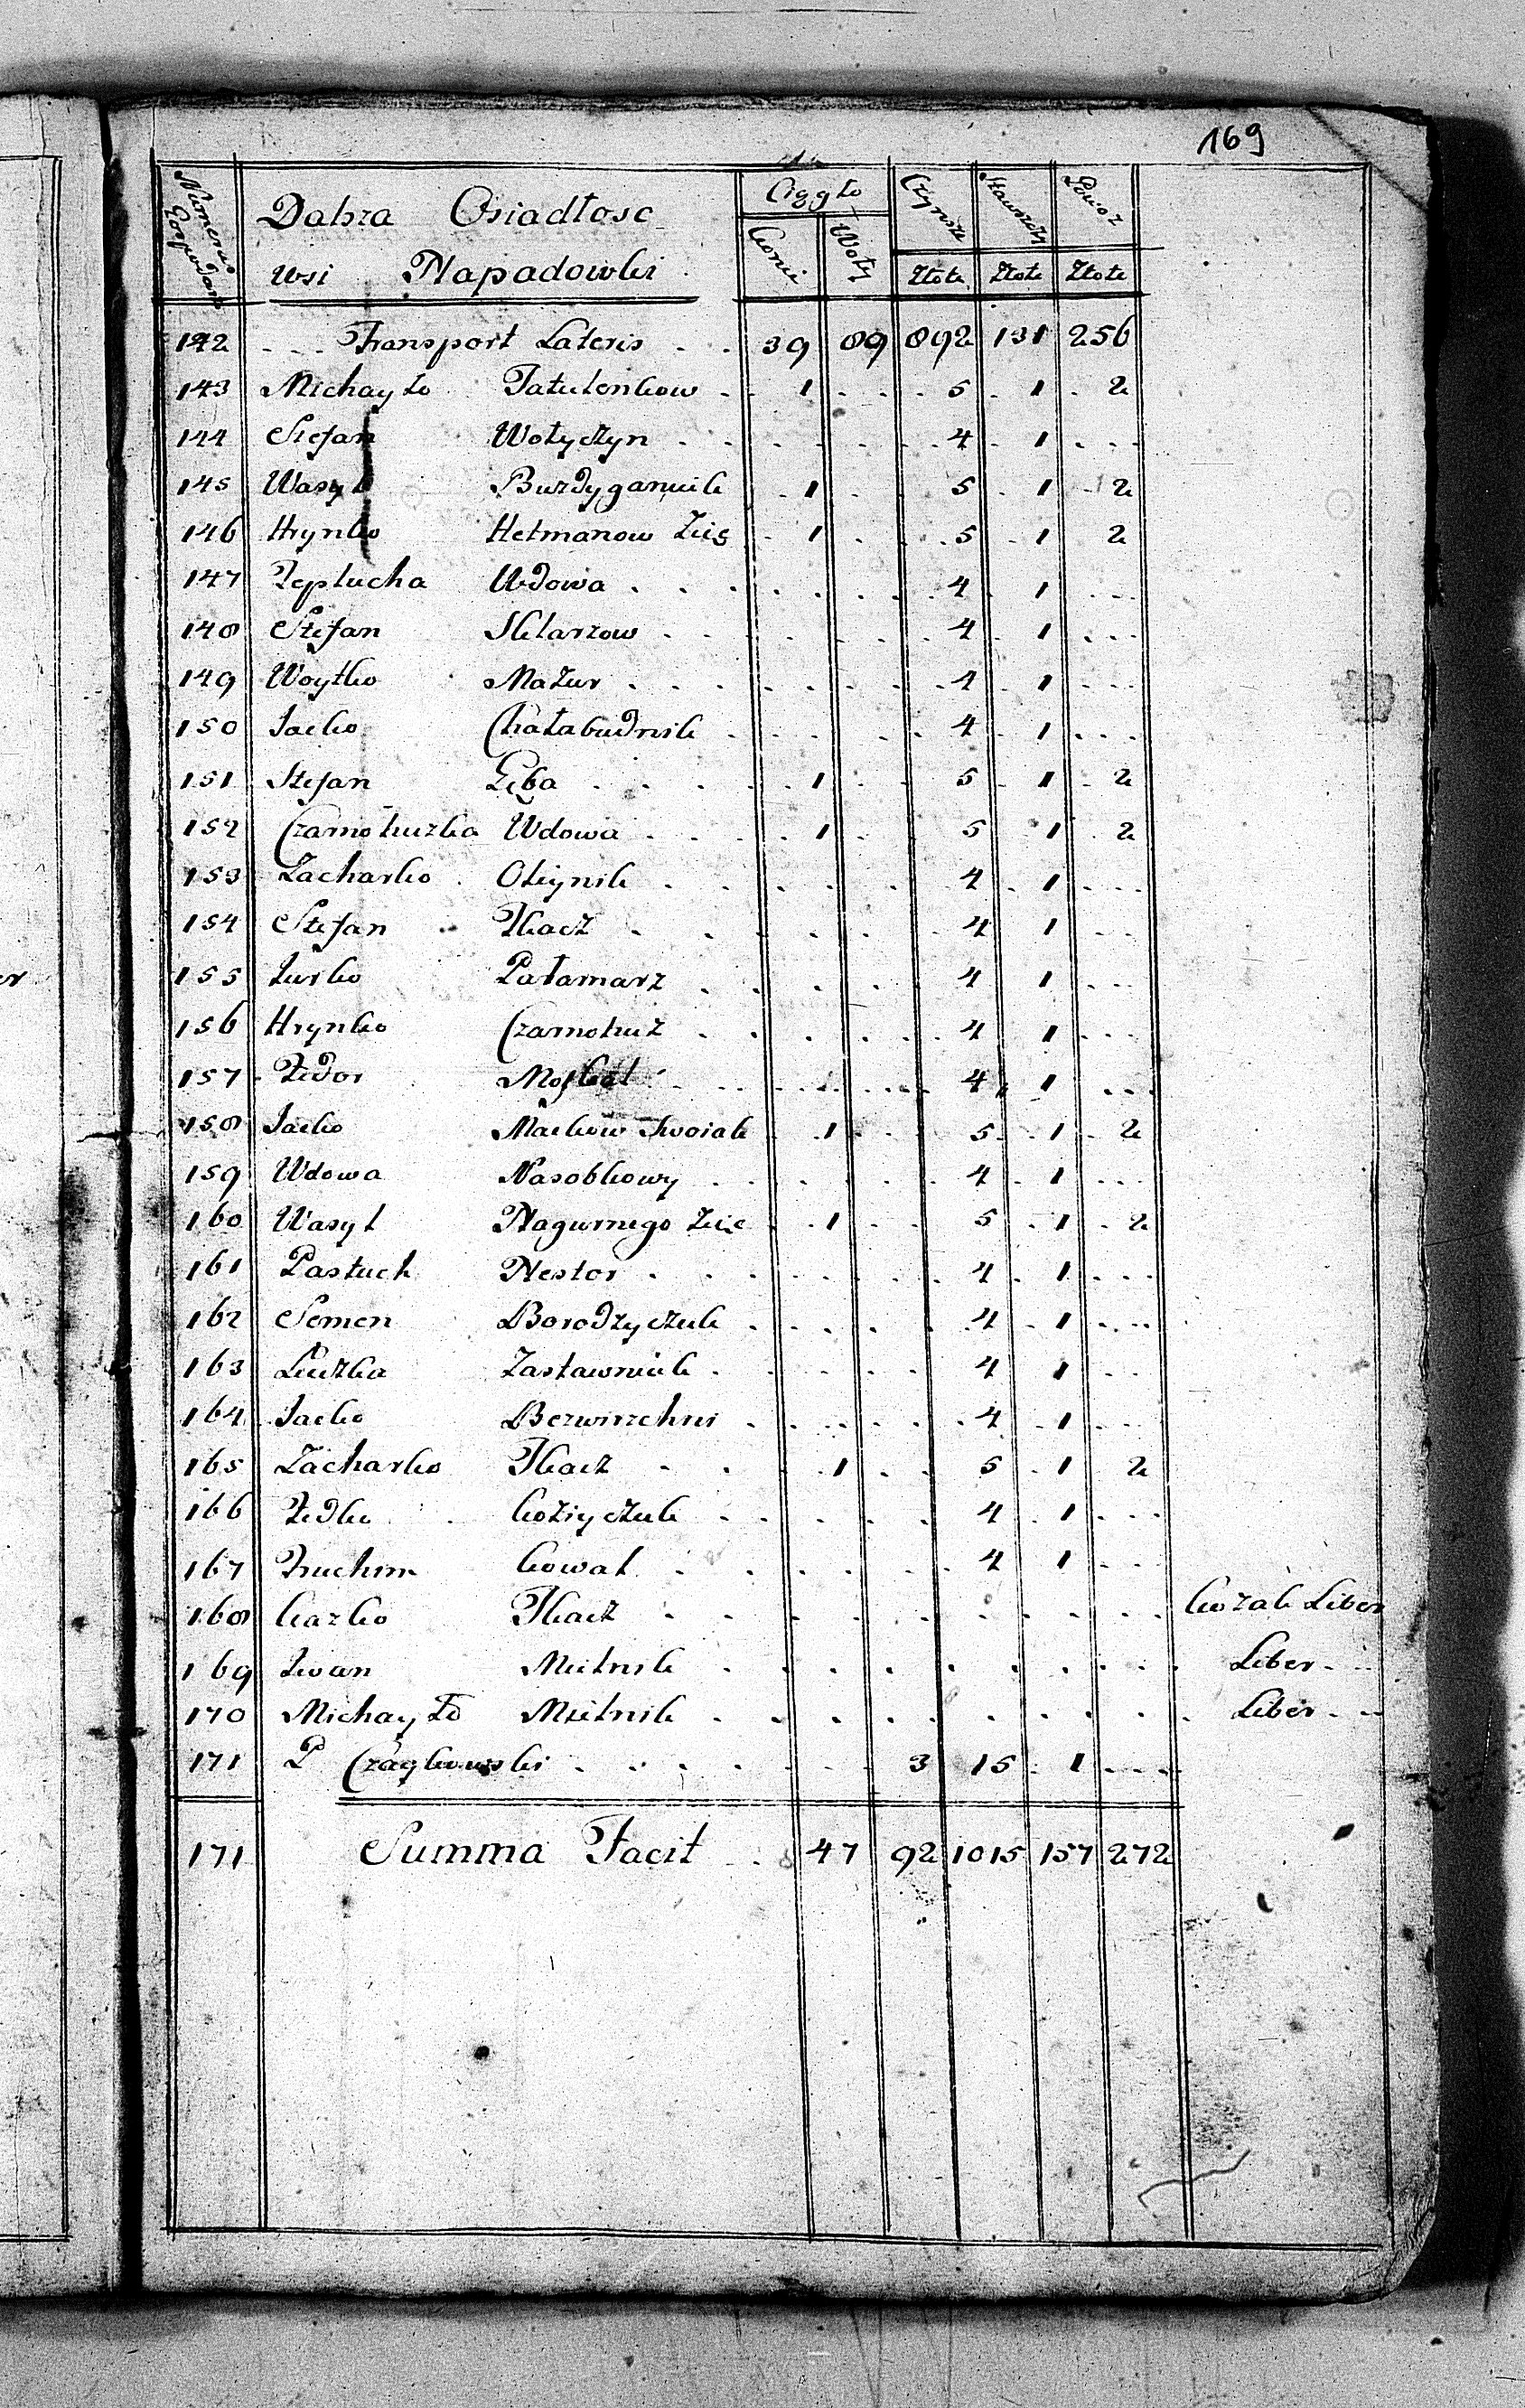 169
Numera Gospodarz Dalsza Osiadłosc Cięgło Czynsz Powoz
wsi Napadowki Konie Woły Złote Złote Złote
142 Transport Lateris 39 89 892 131 256
143 Michayło Tatulenkow 1 5 1 2
144 Stefan Wołyczyn 4 1
145 Wasyl Burdyganiuk 1 5 1 2
146 Hrynko Hetmanow Zięc 1 5 1 2
147 Peplucha Wdowa 4 1
148 Stefan Sklarzow 4 1
149 Woytko Mazur 4 1
150 Jacko Chałabudnik 4 1
151 Stefan Zęba 1 5 1 2
152 Czarnohuzka Wdowa 1 5 1 2
153 Zacharko Oleynik 4 1
154 Stefan Tkacz 4 1
155 Jurko Pałamarz 4 1
156 Hrynko Czarnohuz 4 1
157 Fedor Moskal 4 1
158 Jacko Mackow Swoiak 1 5 1 2
159 Wdowa Nasobkowy 4 1
160 Wasyl Nagurnego Zięc 1 5 1 2
161 Pastuch Nestor 4 1
162 Semen Borodzyczuk 4 1
163 Luczka Zastawniuk 4 1
164 Jacko Bezwirzchni 4 1
165 Zacharko Tkacz 1 5 1 2
166 Fedko Koziyczuk 4 1
167 Truchim Kowal 4 1
168 Kazko Tkacz Kozak Liber
169 Iwan Mielnik Liber
170 Michayło Mielnik Liber
171 P Czaykowski 3 15 1
171 Summa Facit 47 92 1015 157 272